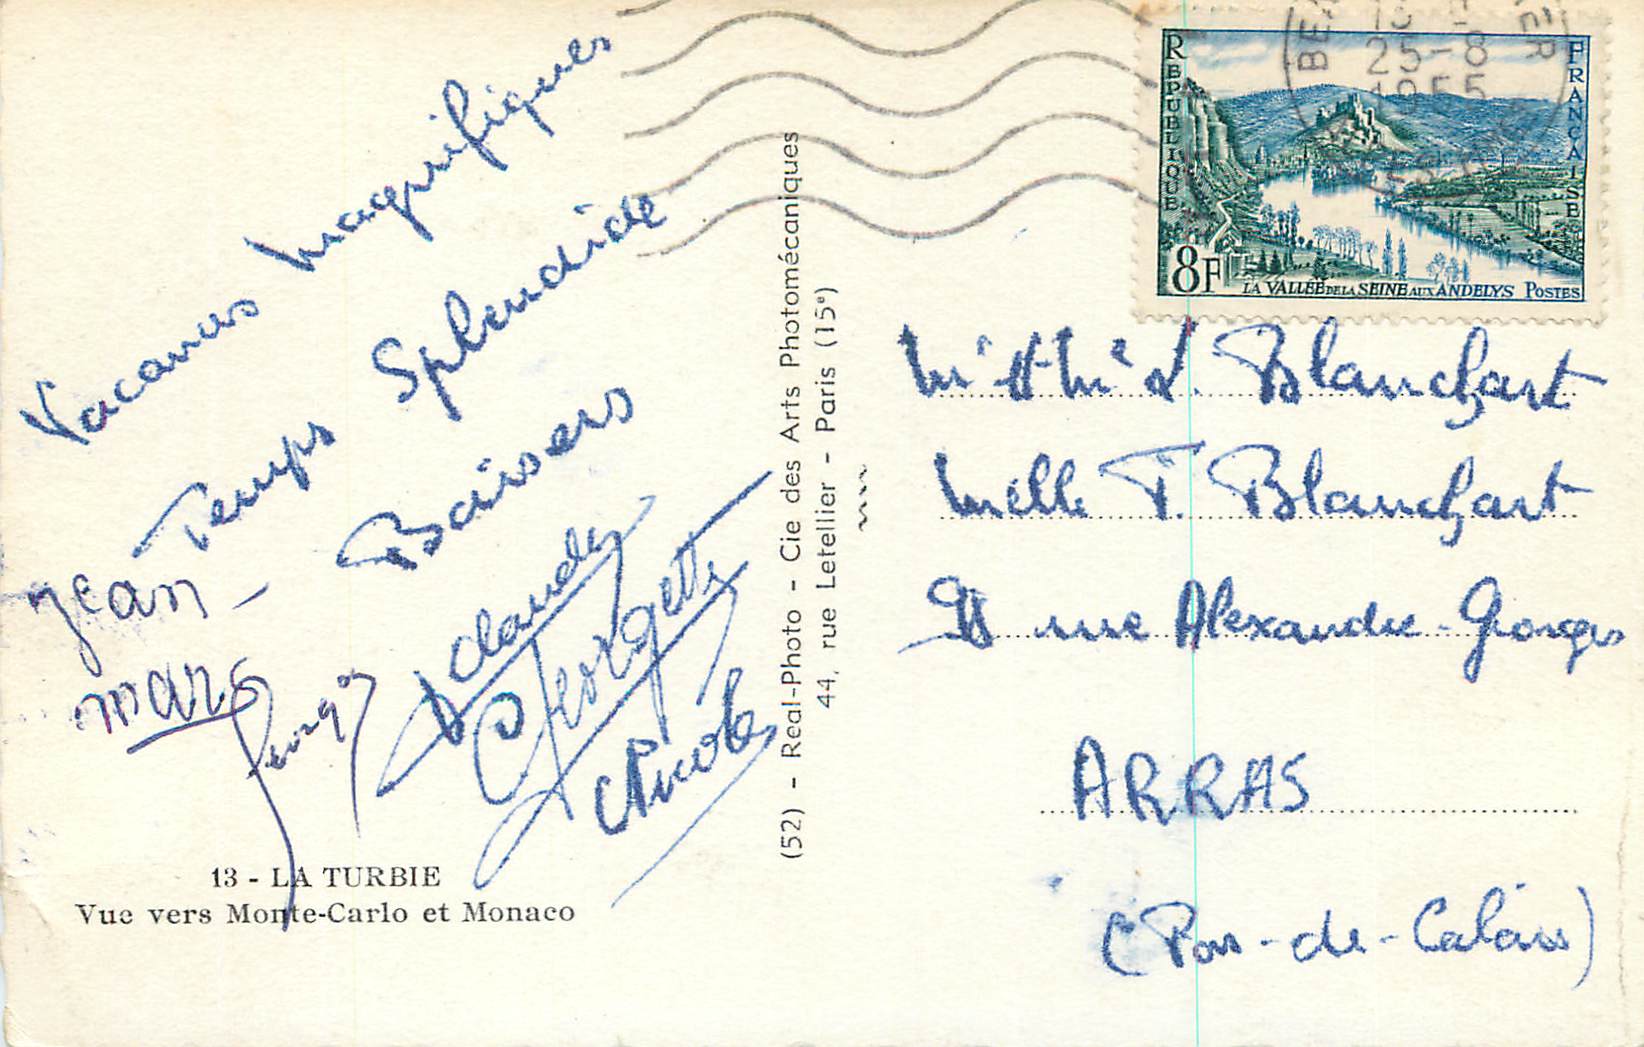 Vacances Magnifiques
Temps Splendide
Baisers
Jean-
marc
Claude
Georgette
Nicole
13 - LA TURBIE
Vue vers Monte-Carlo et Monaco
(52) - Real-Photo - Cie des Arts Photomécaniques
44, rue Letellier - Paris (15e)
25-8
1955
REPUBLIQUE
FRANÇAISE
8F
LA VALLÉE DE LA SEINE AUX ANDELYS POSTES
Mr et Mme L. Blanchart
Melle T. Blanchart
rue Alexandre-Georges
ARRAS
(Pas-de-Calais)